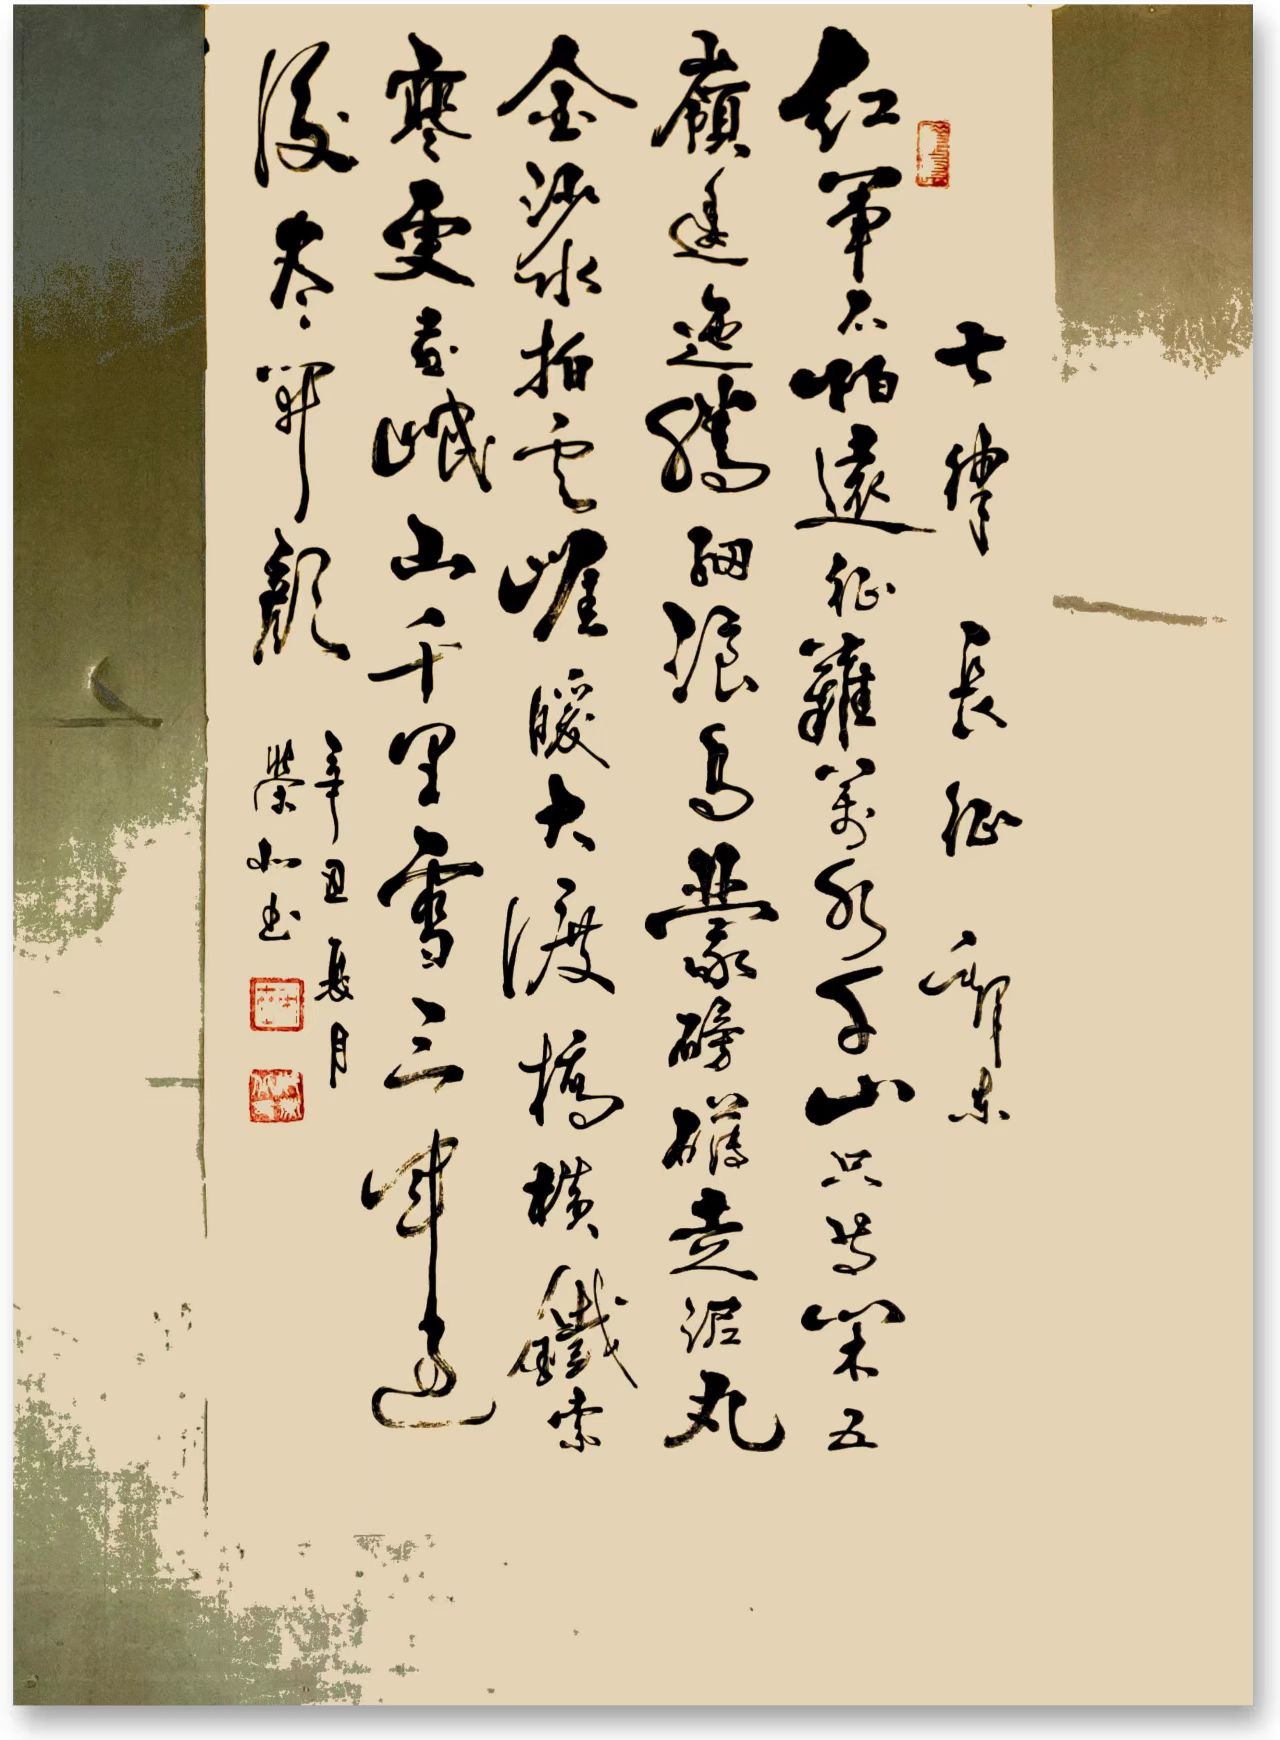 七律 長征 毛澤东
紅軍不怕遠征難萬水千山只等閑五
嶺逶迤騰細浪烏蒙磅礴走泥丸
金沙水拍云崖暖大渡橋橫鐵索
寒更喜岷山千里雪三軍過
後盡開顏
辛丑夏月
榮如书